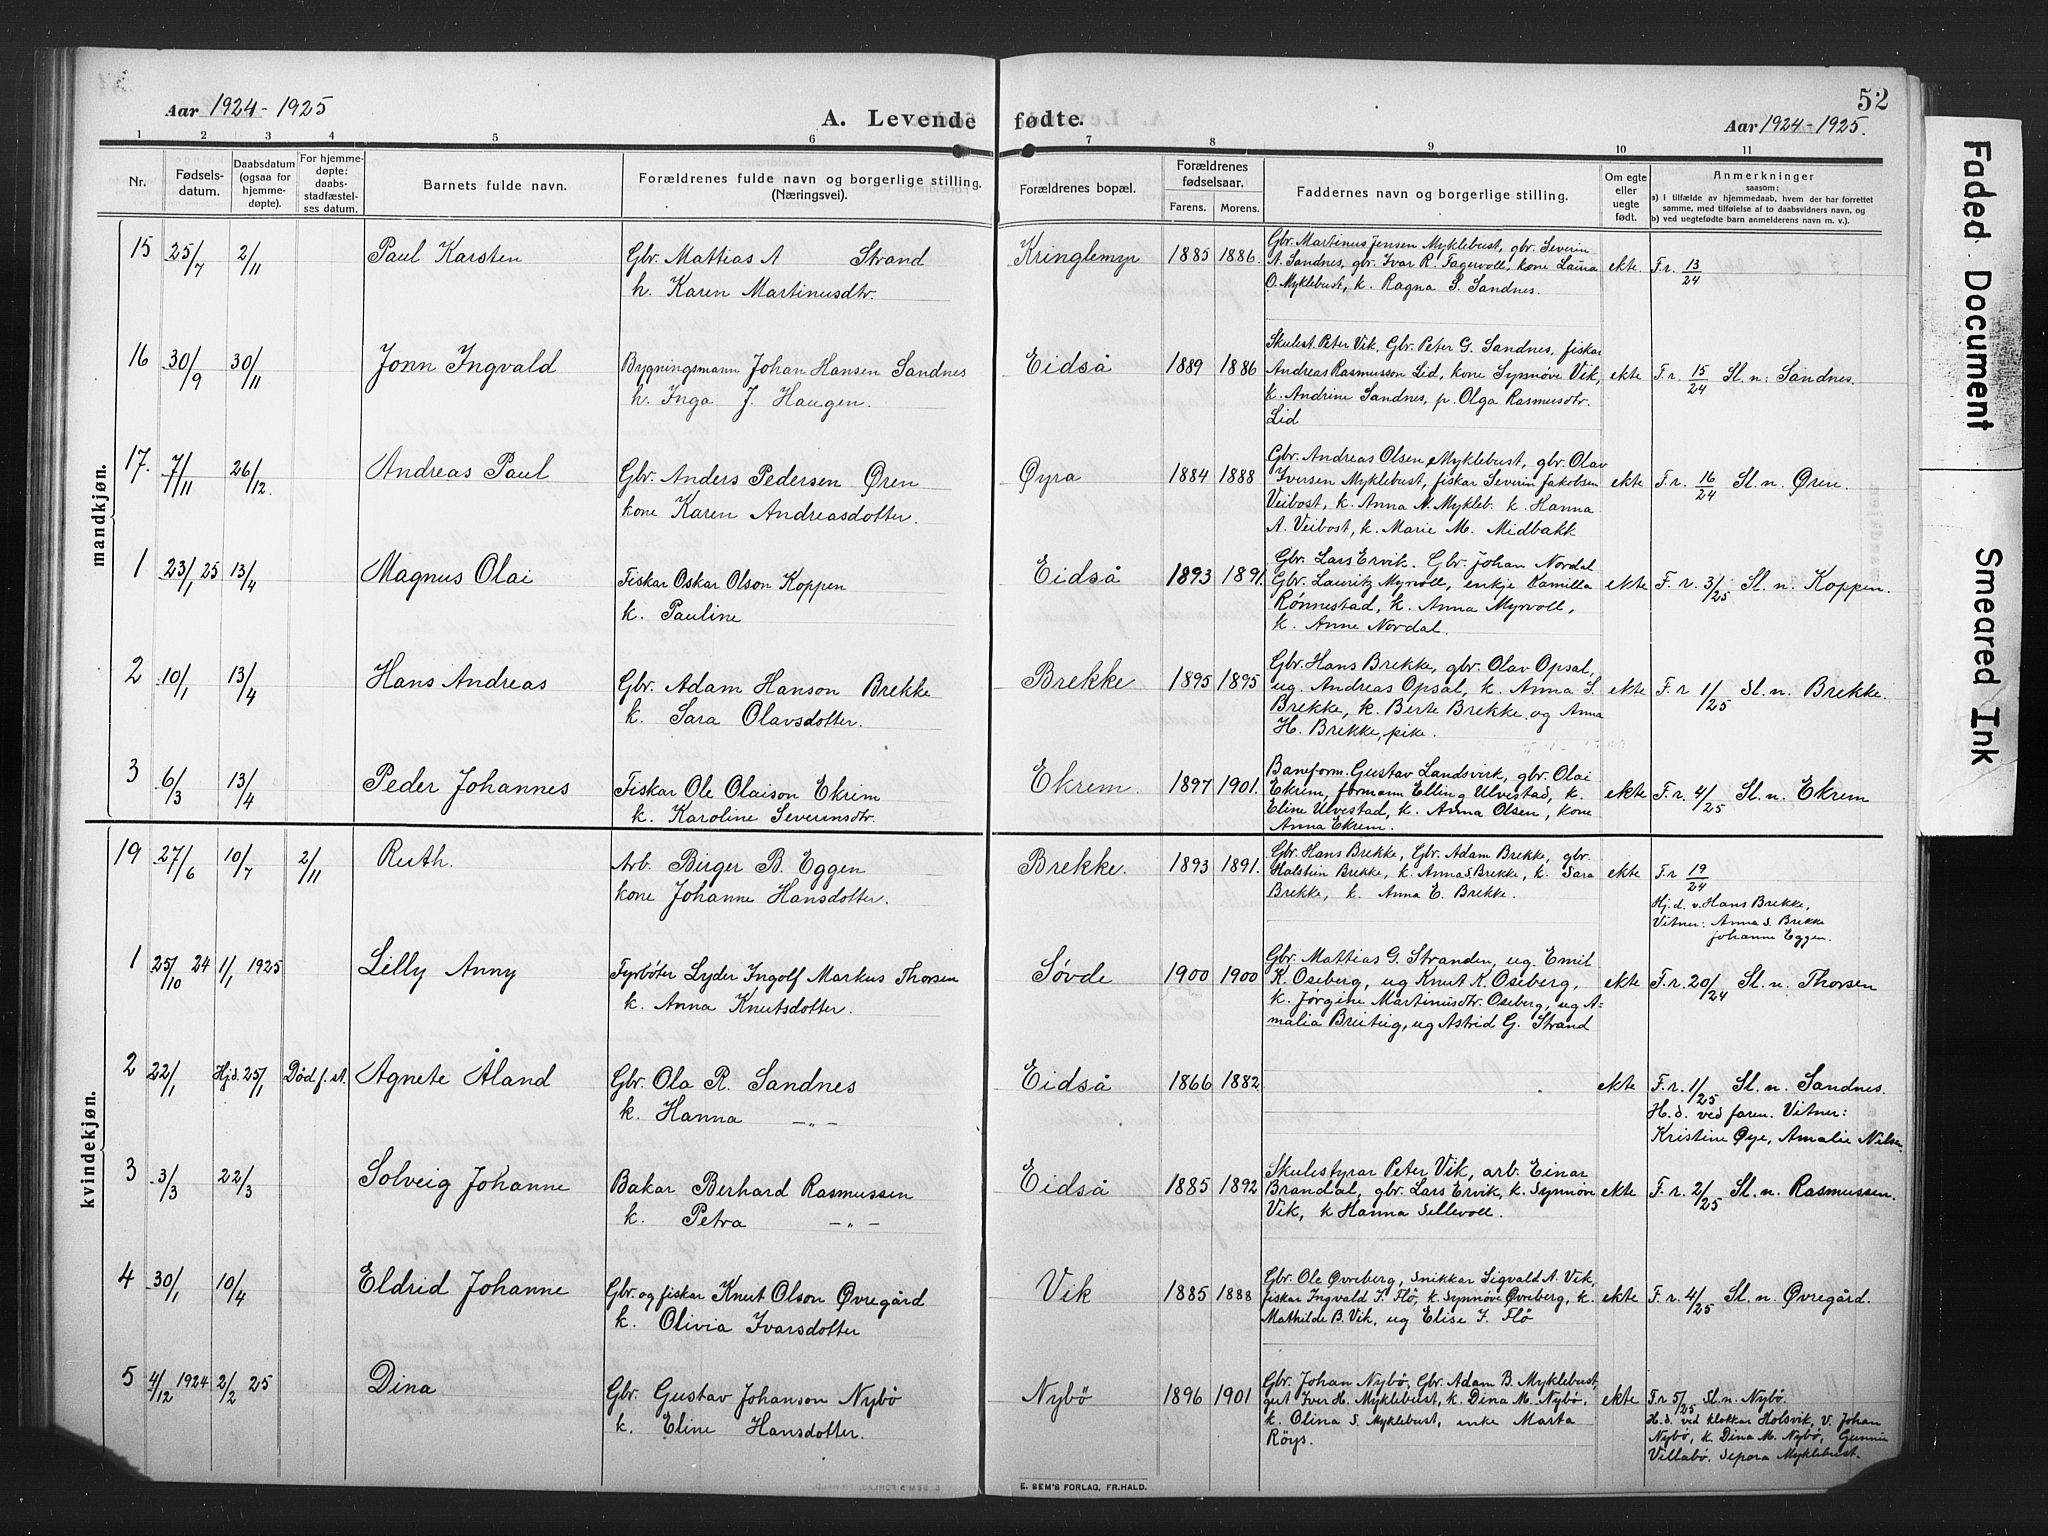 52
Aar 1924-1925
A. Levende fødte.
Aar 1924-1925.
1 2 3 4 5 6 7 8 9 10 11
Nr.
Fødsels-
datum.
Daabsdatum
(ogsaa for
hjemme-
døpte).
For hjemme-
døpte:
daabs-
stadfæstel-
ses datum.
Barnets fulde navn.
Forældrenes fulde navn og borgerlige stilling.
(Næringsvei).
Forældrenes bopæl.
Forældrenes
fødselsaar.
Farens. Morens.
Faddernes navn og borgerlige stilling.
Om egte
eller
uegte
født.
Anmerkninger
saasom:
a) i tilfælde av hjemmedaab, hvem der har forrettet
samme, med tilføielse af to daabsvidners navn, og
b) ved uegtefødte barn anmelderens navn m. v.).
mandkjøn.
15 25/7 2/11 Paul Karsten
Gbr. Mattias A Strand
h. Karen Martinusdtr.
Kringlemyr 1885 1886.
Gbr. Martinus Jensen Myklebust, gbr. Severin
A. Sandnes, gbr. Ivar R. Fagervoll, kone Laura
O. Myklebust, k. Ragna S. Sandnes.
ekte F.r. 13/24
16 30/9 30/11 Jonn Ingvald
Bygningsmann Johan Hansen Sandnes
h. Inga J. Haugen.
Eidså 1889 1886
Skulest. Peter Vik, Gbr. Peter G. Sandnes, fiskar
Andreas Rasmusson Lid, kone Synnøve Vik,
k. Andrine Sandnes, p. Olga Rasmusdtr.
Lid
ekte F.r. 15/24 Sl.n: Sandnes.
17. 7/11 26/12. Andreas Paul
Gbr. Anders Pedersen Øren
kone Karen Andreasdotter.
Øyra 1884 1888
Gbr. Andreas Olsen Myklebust, gbr. Olav
Iversen Myklebust, fiskar Severin Jakobsen
Veibost, k. Anna M. Mykleb. k. Hanna
A. Veibost, k. Marie M. Midbakk
ekte F.r. 16/24 Sl.n. Øren.
1 23/1 25 13/4 Magnus Olai
Fiskar Oskar Olson Koppen
k. Pauline
Eidså 1893 1891.
Gbr. Lars Ervik. Gbr. Johan Nordal
Gbr. Lauritz Myrvoll, enkje Kamilla
Rønnestad, k. Anna Myrvoll,
k. Anne Nordal.
ekte F.r. 3/25 Sl.n. Koppen.
2 10/1 13/4 Hans Andreas
Gbr. Adam Hanson Brekke
k. Sara Olavsdotter.
Brekke 1895 1895
Gbr. Hans Brekke, gbr. Olav Opsal,
ug. Andreas Opsal, k. Anna S.
Brekke, k. Berte Brekke og Anna
H. Brekke, pike.
ekte F.r 1/25 Sl.n. Brekke.
3 6/3 13/4 Peder Johannes
Fiskar Ole Olaison Ekrim
k. Karoline Severinsdtr.
Ekrem. 1897 1901.
Baneform. Gustav Landsvirk, gbr. Olai
Ekrem, formann Elling Ulvestad, k.
Eline Ulvestad, k. Anna Olsen, kone
Anna Ekrem.
ekte F.r. 4/25 Sl.n. Ekrem
kvindekjøn.
19 27/6 10/7 2/11 Ruth.
Arb. Birger B. Eggen
kone Johanne Hansdotter.
Brekke. 1893 1891.
Gbr. Hans Brekke, Gbr. Adam Brekke, gbr.
Halstein Brekke, k. Anna S Brekke, k. Sara
Brekke, k. Anna E. Brekke.
ekte F.r 19/24
Hj.d. v. Hans Brekke,
Vitner: Anna S. Brekke
Johanne Eggen.
1 25/10 24 1/1 1925 Lilly Anny
Fyrbøter Lyder Ingolf Markus Thorsen
k. Anna Knutsdotter.
Søvde 1900 1900
Gbr. Mattias G. Stranden, ug. Emil
K. Oseberg, ug Knut K. Oseberg,
k. Jørgine Martinusdtr. Oseberg, ug A-
malia Breiteig, ug Astrid G. Strand
ekte F.r. 20/24 Sl.n. Thorsen
2 22/1 Hjd. 25/1 Død f. st. Agnete Åland
Gbr. Ola R. Sandnes
k. Hanna -"-
Eidså 1866 1882.
ekte F.r. 1/25 Sl.n. Sandnes.
H.d. ved faren. Vitner:
Kristine Øye, Amalie Nilsen
3 3/3 22/3 Solveig Johanne
Bakar Berhard Rasmussen
k. Petra -"-
Eidså 1885 1892
Skulestyrar Peter Vik, arb. Einar
Brandal, gbr. Lars Ervik, k. Synnøve
Vik, k Hanna Sellevoll.
ekte F.r. 2/25 Sl.n. Rasmussen.
4 30/1 10/4 Eldrid Johanne
Gbr. og fiskar Knut Olson Øvregård
k. Olivia Ivarsdotter
Vik 1885 1888
Gbr. Ole Øvreberg, Snikkar Sigvald A. Vik,
fiskar Ingvald I. Flø, k. Synnøve Øvreberg, k.
Mathilde B. Vik, ug Elise I. Flø
ekte F.r. 4/25 Sl.n. Øvregård.
5 4/12 1924 2/2 25 Dina
Gbr. Gustav Johanson Nybø
k. Eline Hansdotter.
Nybø 1896 1901
Gbr. Johan Nybø, Gbr. Adam B. Myklebust,
gut Iver H. Myklebust, k. Dina M. Nybø,
k. Olina S. Myklebust, enke Marta
Röys.
ekte F.r 5/25 Sl.n. Nybø.
H.d. ved klokkar Holsvik, V. Johan
Nybø, k. Dina M. Nybø, Gunnie
Villabø, Sepora Myklebust.
E. SEM'S FORLAG, FR.HALD.
Faded Document
Smeared Ink